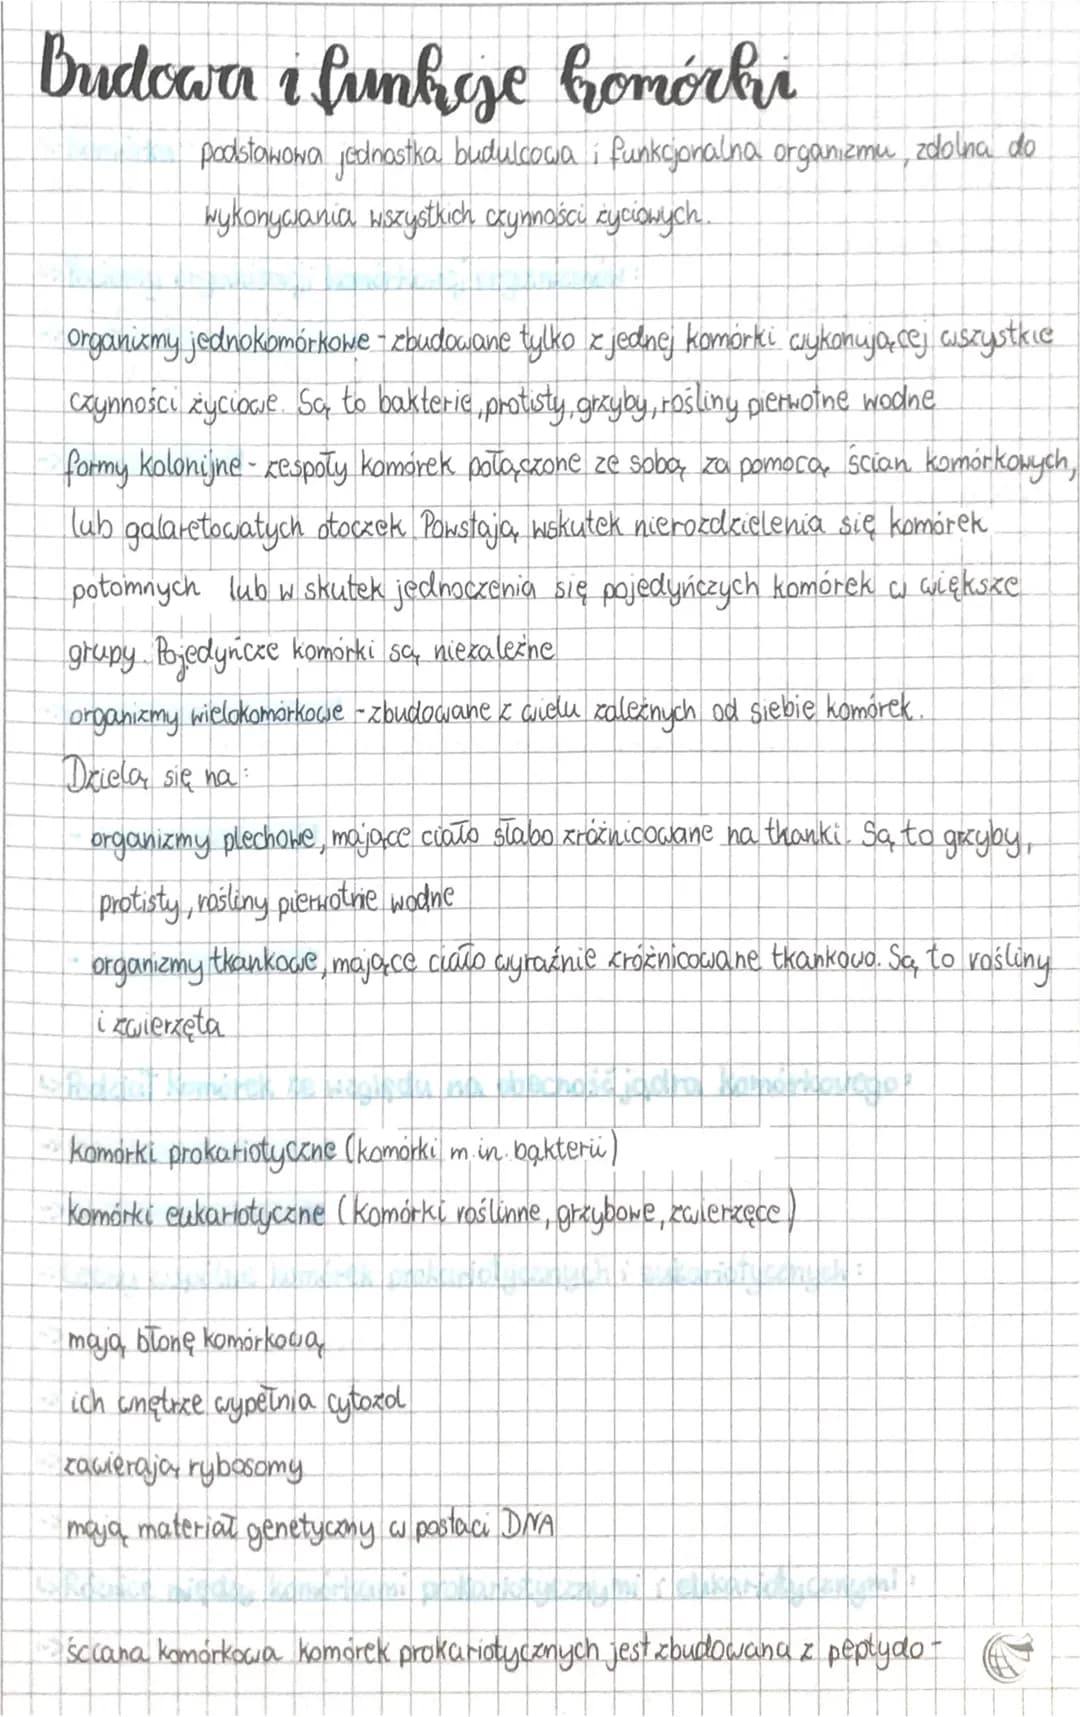 Budowa i funkcje komórki
podstawowa jednostka budulcowa i funkcjonalna organizmu, zdolna do
wykonywania wszystkich czynności życiowych.
organizmy jednokomórkowe - zbudowane tylko z jednej komórki wykonującej wszystkie
czynności życiowe. Są to bakterie, protisty, grzyby, rośliny pierwotne wodne
formy kolonijne - zespoły komórek połączone ze sobą za pomocą ścian komórkowych,
lub galaretowatych otoczek. Powstają wskutek nierozdzielenia się komórek
potomnych lub w skutek jednoczenia się pojedyńczych komórek w większe
grupy. Pojedyńcze komórki są niezależne
organizmy wielokomórkowe - zbudowane z wielu zależnych od siebie komórek.
Dzielą się na:
organizmy plechowe, mające ciało słabo zróżnicowane na thanki. Są to grzyby,
protisty, rośliny pierwotnie wodne
organizmy tkankowe, mające ciało wyraźnie zróżnicowane tkankowo. Są to rośliny
i zwierzęta
Podział komórek ze względu na obecność jądra komórkowego:
komórki prokariotyczne (komórki m.in. bakterii)
komórki eukariotyczne (komórki roślinne, grzybowe, zwierzęce)
komórek prokariotycznych i eukariotycznych:
mają błonę komórkową
ich wnętrze wypełnia cytozol
zawierają rybosomy
mają materiał genetyczny w postaci DNA
Różnice między komórkami prokariotycznymi i eukariotycznymi:
ściana komórkowa komórek prokariotycznych jest zbudowana z peptydo-